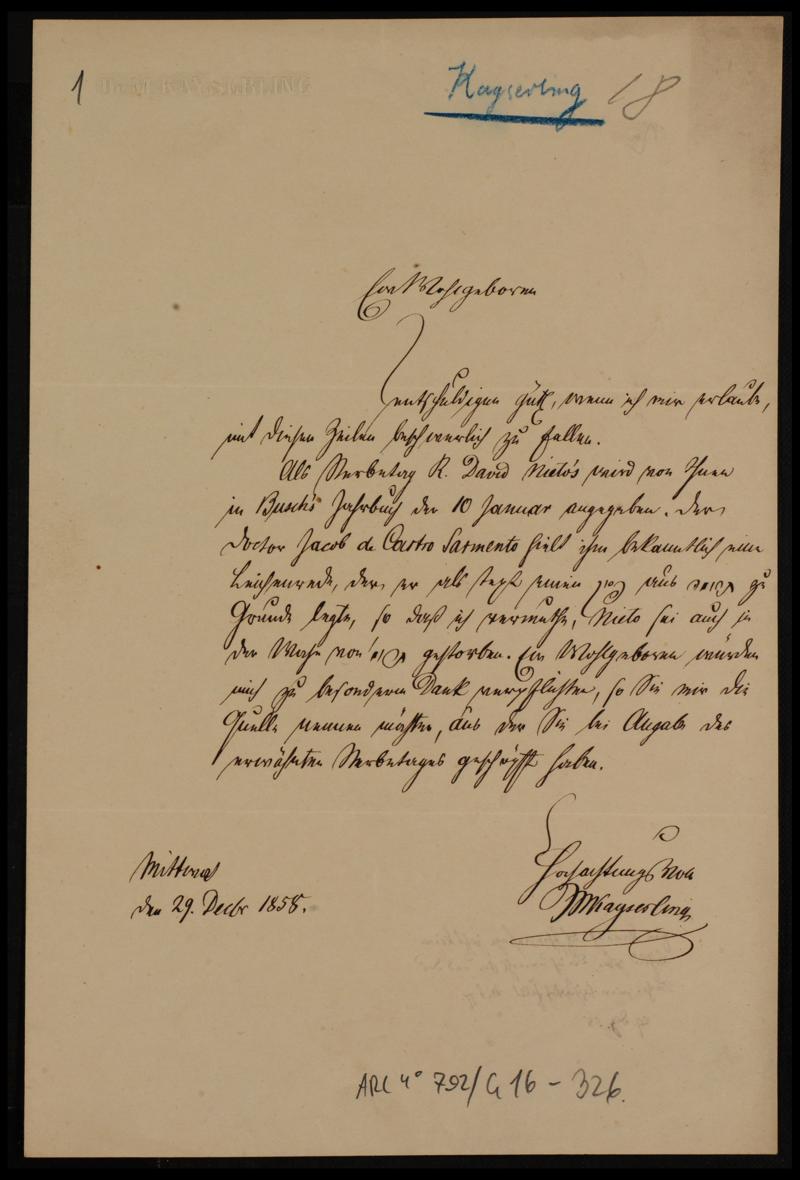 1
Kayserling 18
Ew Wohlgeboren
entschuldigen gütigst, wenn ich mir erlaube,
mit diesen Zeilen beschwerlich zu fallen.
Als Sterbetag R. David Nieto's wird von Ihnen
in Busch's Jahrbuch der 10 Januar angegeben. Der
Doctor Jacob de Castro Sarmento hielt ihm bekanntlich eine
Leichenrede, der er als Text einen פסוק aus zu
Grunde legte, so daß ich vermuthe, Nieto sei auch in
der Woche von gestorben. Ew Wohlgeboren würden
mich zu besonderm Dank verpflichten, so Sie mir die
Quelle nennen möchten, aus der Sie bei Angabe des
erwähnten Sterbetages geschöpft haben.
Hochachtungsvoll
MKayserling
den 29. Decbr 1858.
ARC 4° 792/G 16 - 326.